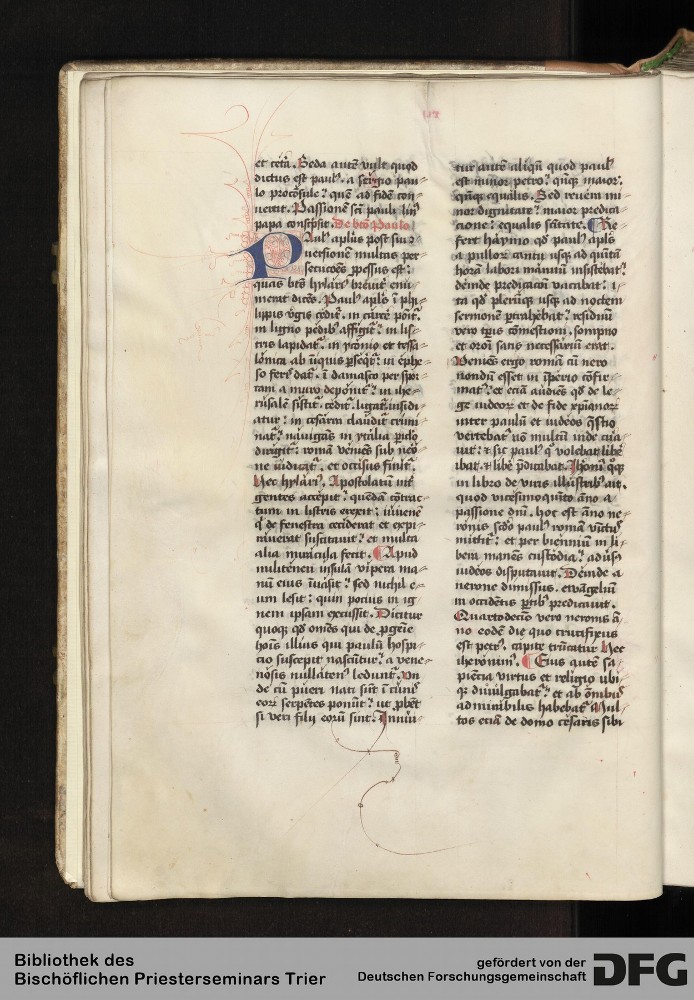 et cetā. Beda autē vult quod
dictus est paul᷒. a sergio pau-
lo procōsule? quē ad fidē con-
uertit. Passionē sci pauli lin᷒
papa conscͥpsit. De bto Paulo
Paul᷒ aplus post sui
uersionem multas per-
secucōēs ꝑpessus est?
quas bt᷒s hylari᷒ breuit᷑ enu-
merat dicēs. Paul᷒ apls ī phi-
lippis cedit᷑. in carcē poit᷑.
in ligno pedib᷒ affigit᷑? in lis-
tris lapidat᷑. in yconio et tessa-
lōnica ab īiquis ꝑseqt᷑? in ephe-
so feris dat᷑. ī damasco per spor-
tam a muro depōnit᷑? in ihe-
rusalē sistit᷑. cedit᷑. ligat᷑. insidi-
atur? in cesarea claudit᷑ crimi-
nat᷑? nauigās in ytalia
romā veniēs sub nero-
ne iudicat᷑. et occisus finit᷑.
Hec hylari᷒. Apostolatum int᷑
gentes accepit? quēdā cōtrac-
tum in listris erexit? iuuenē
qͥ de fenestra ceciderat et expi-
rauerat suscitauit? et multa
alia miracula fecit. Apud
militenen insulā vipera ma-
nū eius īuasit? sed nichil e-
um lesit? quin pocius in ig-
nem ipsam excussit. Dicitur
quoqꝫ qd omēs qui de ꝓgēie
hoīs illius qui paulū hospi-
cio suscepit nascūtur? a vene-
nōsis nullaten᷒ ledunt᷑. Un
de cū pueri nati sūt ī cuni᷒
eorꝝ serpētes ponūt᷑? ut ꝓbēt᷑
si veri filii eorū sint. Inuui-
tur autē aliqn̄ quod paul᷒
est minor petro? qn̄qꝫ maior?
qn̄qꝫ equalis. Sed reuera mi-
nor dignitate? maior predica-
cione? equalis scītate. Re-
fert haymo qd paul᷒ apls᷒
a pullorꝝ cantu usqꝫ ad quītā
horā labori manuū insistebat?
deinde predicacōi vacabat? i-
ta qd plerūqꝫ usqꝫ ad noctem
sermonē ꝓtrahebat? residuū
vero tp̄is cōmestioni. sompno
et orōni satis necessariū erat.
Veniēs ergo romā cū nero
nondū esset in īperio cōfir-
mat᷒? et eciā audiēs qd de le-
ge iudeorꝝ et de fide xpianorꝝ
inter paulū et iudeos qͣstio
vertebat᷑ nō multū inde cura-
uit? et sic paul᷒ qͦ volebat libē
ibat. et libē p̄dicabat. Iheroni᷒ qͦqꝫ
in libro de viris illustrib᷒ ait.
quod vicesimoquīto āno a
passione dnī. hoc est āno ne-
rōnis scdo paul᷒ romā vīct᷒
mittit᷑? et per bienniū in li-
bera manēs custodia? adūs᷒
iudeos disputauit. Deinde a
nerone dimissus. ewāgeliū
in occidētis ꝑtib᷒ predicauit.
Quartodecīo vero neronis ā-
no eodē die quo crucifixus
est petr᷒. capite trūcatur Hec
iheronim᷒. Eius autē sa-
piēcia virtus et religio ubi-
qꝫ diuulgabat᷑? et ab ōmib᷒
admirabilis habebat᷑. Mul-
tos eciā de domo cesaris sibi
Bibliothek des
Bischöflichen Priesterseminars Trier
gefördert von der
Deutschen Forschungsgemeinschaft
DFG